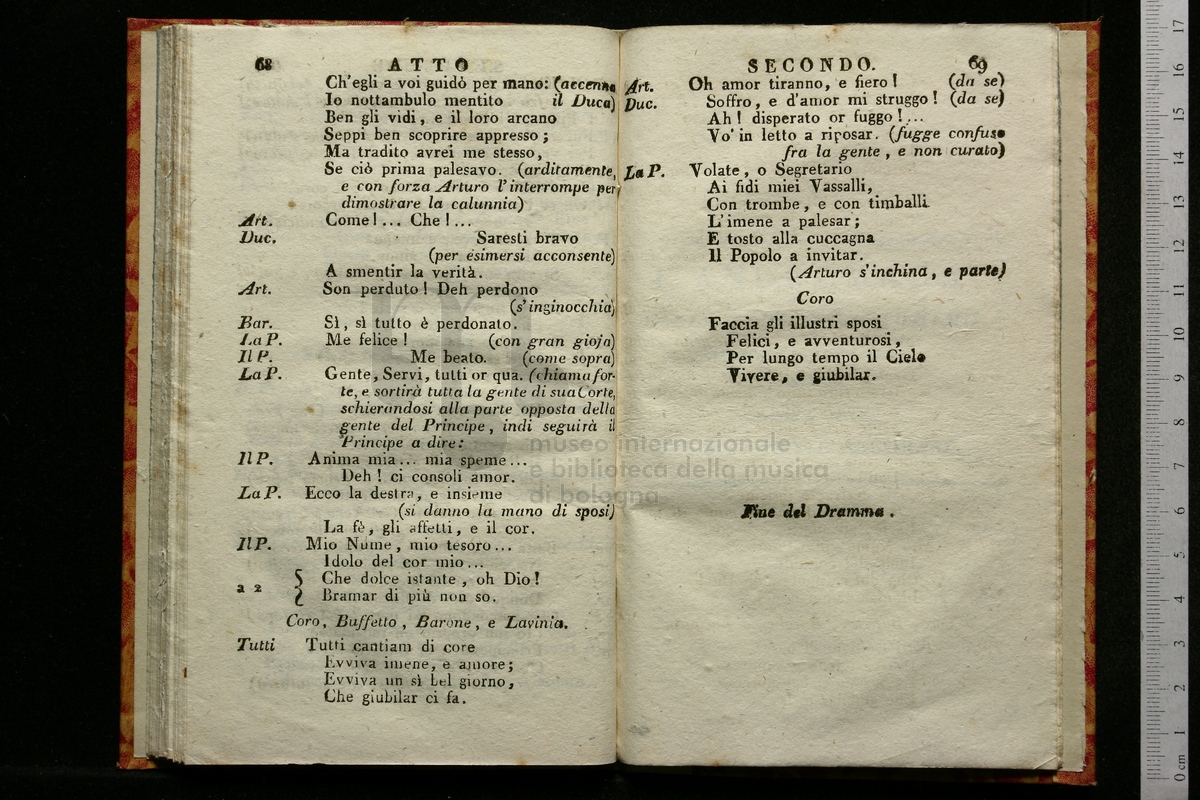 68 ATTO
Ch'egli a voi guidò per mano: (accenna
Io nottambulo mentito il Duca)
Ben gli vidi, e il loro arcano
Seppi ben scoprire appresso;
Ma tradito avrei me stesso,
Se ciò prima palesavo. (arditamente,
e con forza Arturo l'interrompe per
dimostrare la calunnia)
Art. Come!... Che!...
Duc. Saresti bravo
(per esimersi acconsente)
A smentir la verità.
Art. Son perduto! Deh perdono
(s'inginocchia)
Bar. Sì, sì tutto è perdonato.
La P. Me felice! (con gran gioja)
Il P. Me beato. (come sopra)
La P. Gente, Servi, tutti or qua. (chiama for-
te, e sortirà tutta la gente di sua Corte,
schierandosi alla parte opposta della
gente del Principe, indi seguirà il
Principe a dire:
Il P. Anima mia... mia speme...
Deh! ci consoli amor.
La P. Ecco la destra, e insieme
(si danno la mano di sposi)
La fè, gli affetti, e il cor.
Il P. Mio Nume, mio tesoro...
Idolo del cor mio...
a 2 Che dolce istante, oh Dio!
Bramar di più non so.
Coro, Buffetto, Barone, e Lavinia.
Tutti Tutti cantiam di core
Evviva imene, e amore;
Evviva un sì bel giorno,
Che giubilar ci fa.
SECONDO. 69
Art. Oh amor tiranno, e fiero! (da se)
Duc. Soffro, e d'amor mi struggo! (da se)
Ah! disperato or fuggo!...
Vo' in letto a riposar. (fugge confuso
fra la gente, e non curato)
La P. Volate, o Segretario
Ai fidi miei Vassalli,
Con trombe, e con timballi
L'imene a palesar;
E tosto alla cuccagna
Il Popolo a invitar.
(Arturo s'inchina, e parte)
Coro
Faccia gli illustri sposi
Felici, e avventurosi,
Per lungo tempo il Cielo
Vivere, e giubilar.
Fine del Dramma.
museo internazionale
e biblioteca della musica
di bologna
0 cm 1 2 3 4 5 6 7 8 9 10 11 12 13 14 15 16 17